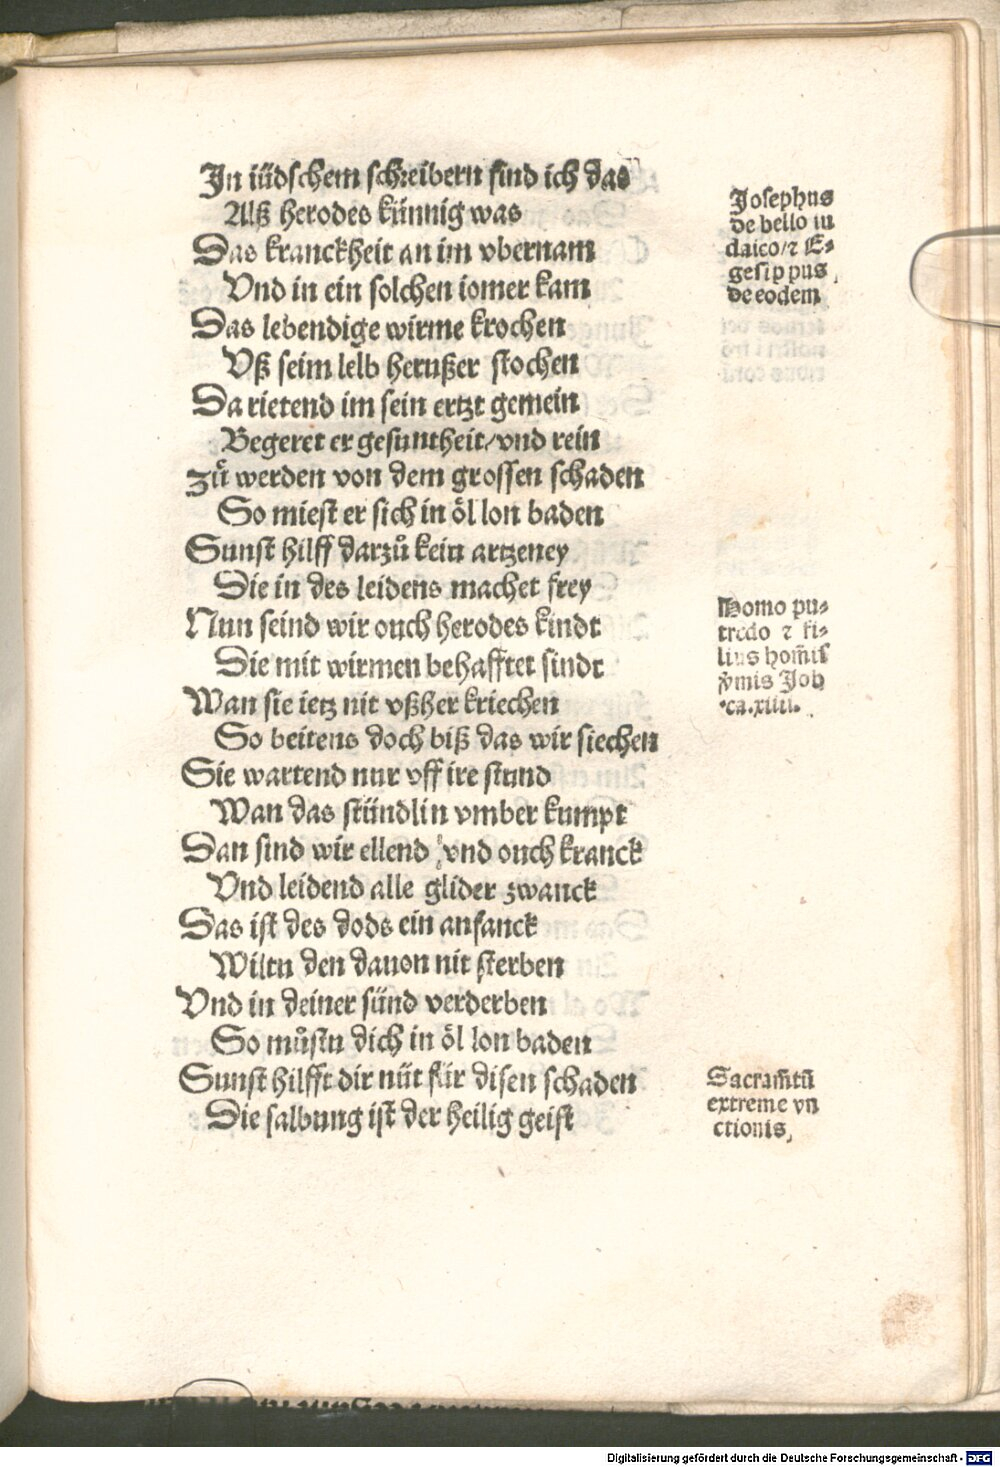 In iüdschem schreibern find ich das
Alß herodes künnig was
Das kranckheit an im vbernam
Vnd in ein solchen iomer kam
Das lebendige wirme krochen
Vß seim leib herußer stochen
Da rietend im sein ertzt gemein
Begeret er gesuntheit/vnd rein
zů werden von dem grossen schaden
So miest er sich in öl lon baden
Sunst hilff darzů kein artzeney
Die in des leidens machet frey
Nun seind wir ouch herodes kindt
Die mit wirmen behafftet sindt
Wan sie ietz nit vßher kriechen
So beitens doch biß das wir siechen
Sie wartend nur vff ire stund
Wan das stündlin vmber kumpt
Dan sind wir ellend vnd ouch kranck
Vnd leidend alle glider zwanck
Das ist des dods ein anfanck
Wiltu den dauon nit sterben
Vnd in deiner sünd verderben
So můstu dich in öl lon baden
Sunst hilfft dir nüt für disen schaden
Die salbung ist der heilig geist
Josephus
de bello iu
daico/⁊ E⸗
gesippus
de eodem
Homo pu⸗
tredo ⁊ fi⸗
lius hom̄is
v̓mis Job
ca.xiiii.
Sacram̄tū
extreme vn
ctionis,
Digitalisierung gefördert durch die Deutsche Forschungsgemeinschaft - DFG